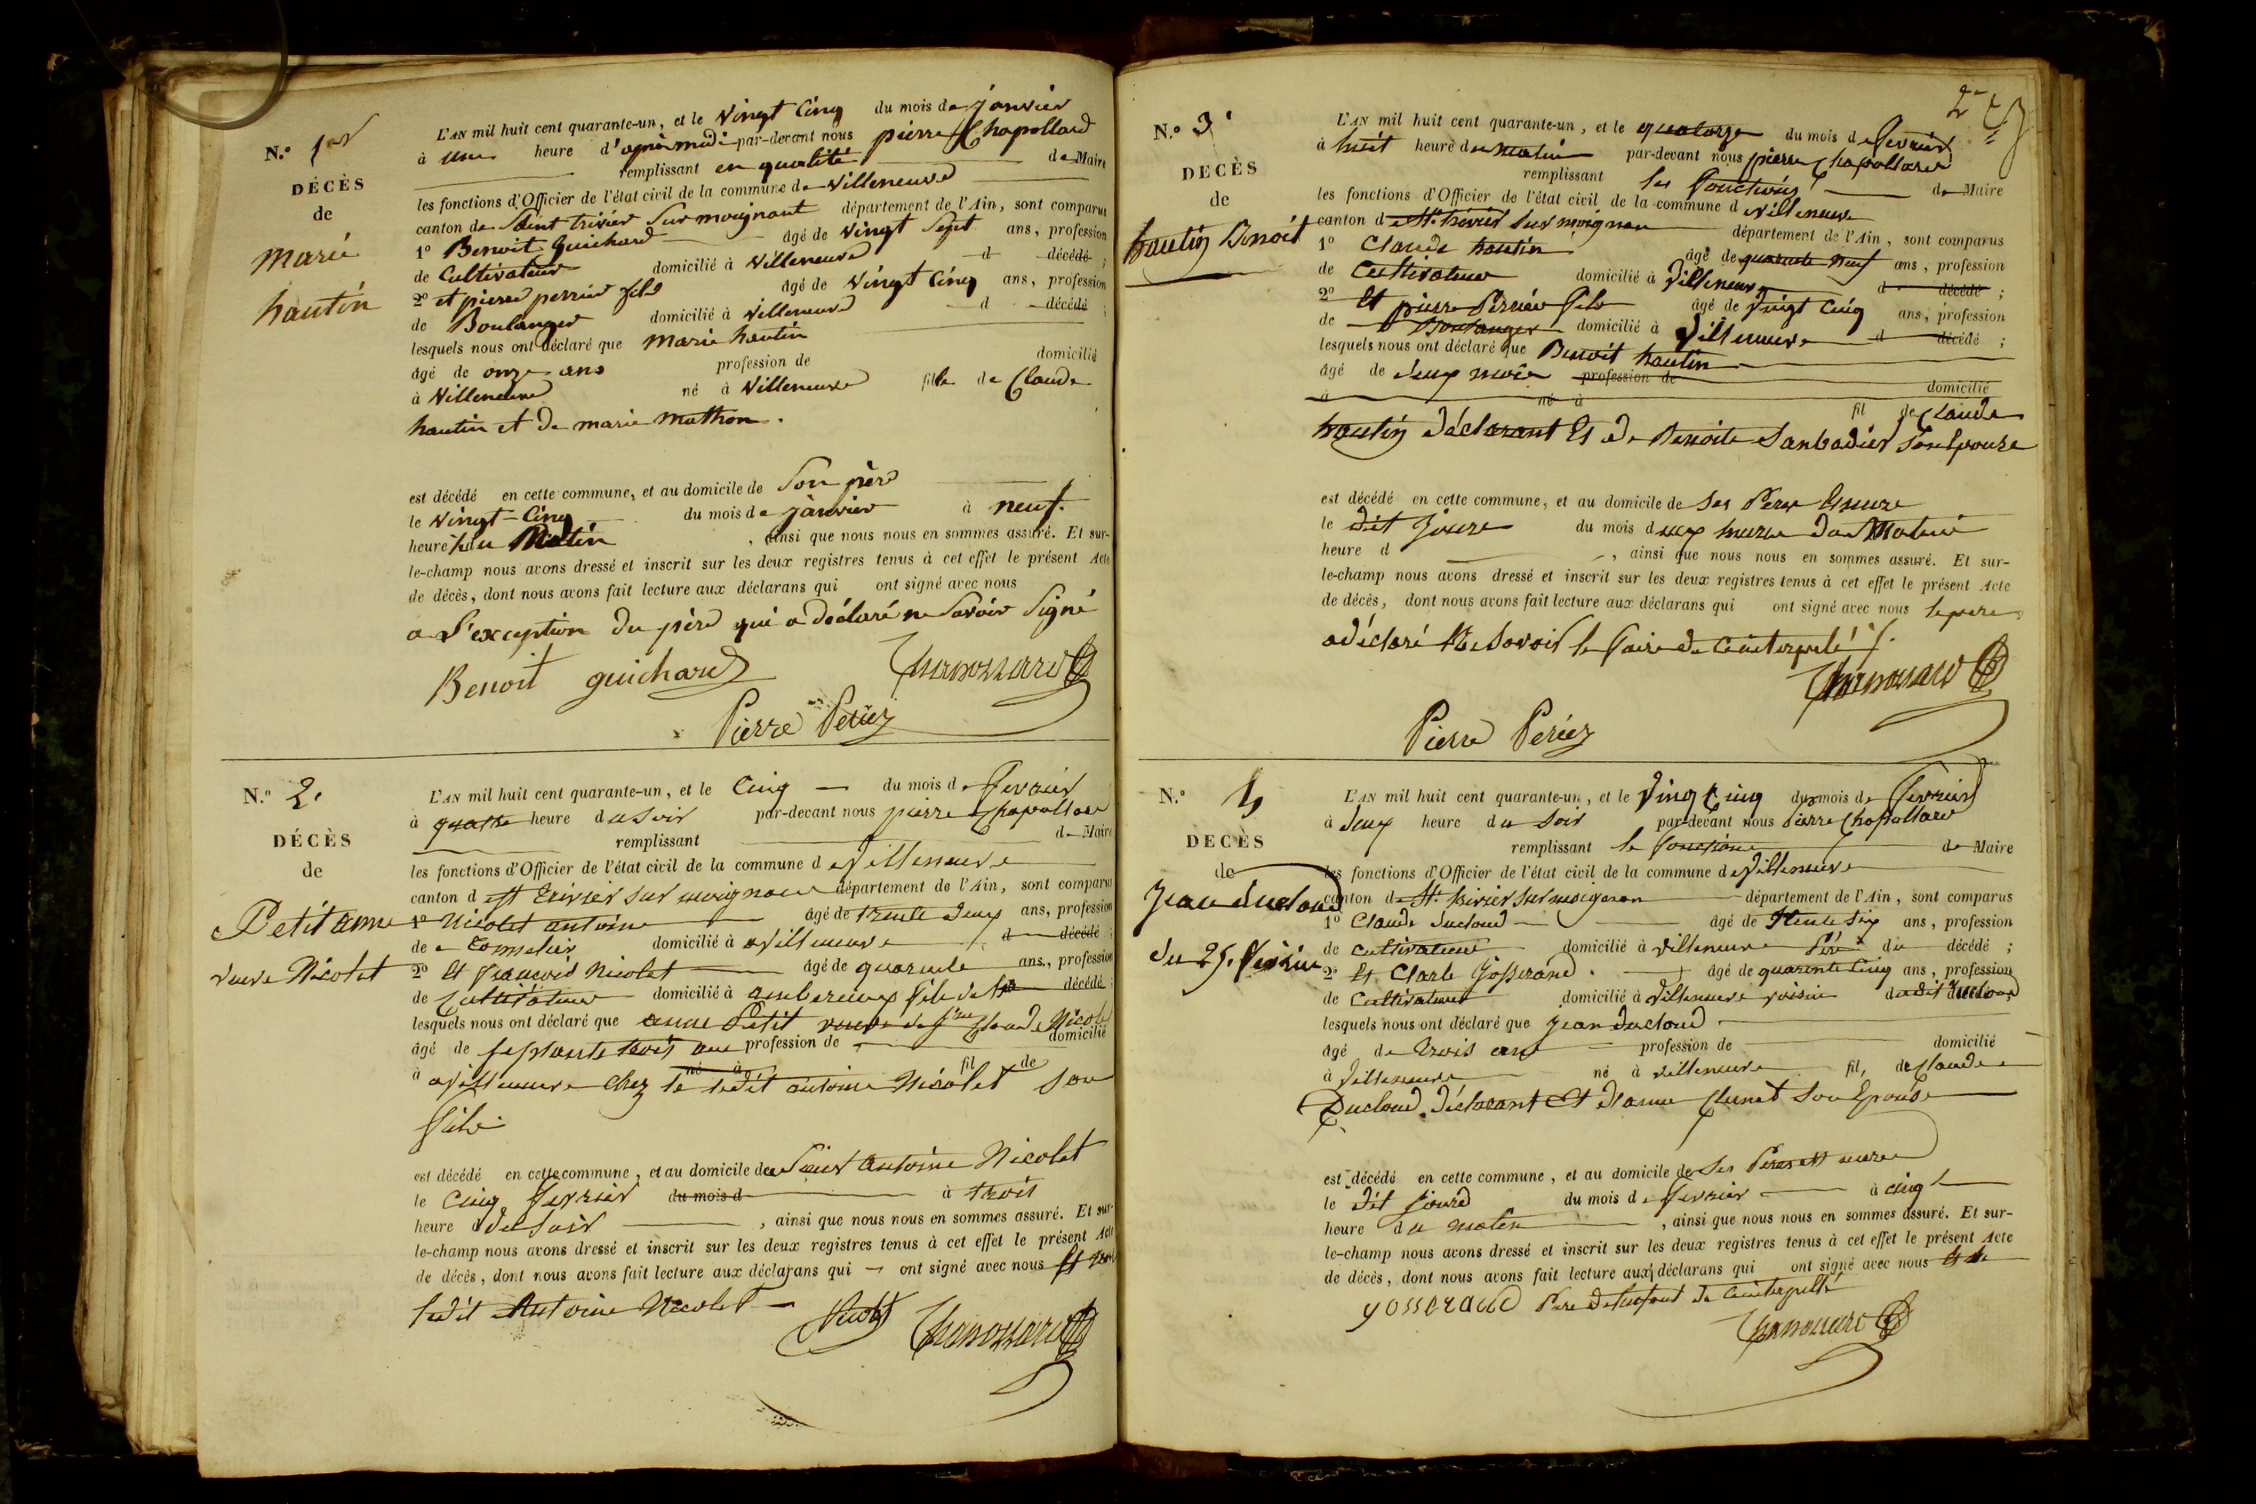 N.º 1er
DÉCÈS
de
Marie
hautin
L'AN mil huit cent quarante-un, et le Vingt Cinq du mois de janvier
à une heure d'après midi par-devant nous pierre Chapollard
remplissant en qualité de Maire
les fonctions d'Officier de l'état civil de la commune de Villeneuve
canton de Saint trivier Sur moignant département de l'Ain, sont comparus
1º Benoit Guichard âgé de Vingt Sept ans, profession
de Cultivateur domicilié à Villeneuve d décédé ;
2º et pierre perrier fils âgé de Vingt Cinq ans, profession
de Boulanger domicilié à Villeneuve d décédé ;
lesquels nous ont déclaré que Marie hautin
âgé de onze ans profession de domicilié
à Villeneuve né à Villeneuve fille de Claude
hautin et de marie Mathon.
est décédé en cette commune, et au domicile de Son père
le Vingt-Cinq du mois de janvier à neuf
heure du Matin, ainsi que nous nous en sommes assuré. Et sur-
le-champ nous avons dressé et inscrit sur les deux registres tenus à cet effet le présent Acte
de décès, dont nous avons fait lecture aux déclarans qui ont signé avec nous
a L'exception du père qui a déclaré ne Savoir Signé
Benoit guichard
Pierre Periez
N.º 2.
DÉCÈS
de
Petit anne
veuve Nicolet
L'AN mil huit cent quarante-un, et le Cinq du mois de Fevrier
à quatre heure du Soir par-devant nous pierre Chapollard
remplissant de Maire
les fonctions d'Officier de l'état civil de la commune de Villeneuve
canton de St Trivier sur moignans département de l'Ain, sont comparus
1º Nicolet antoine âgé de trente deux ans, profession
de Tonnelier domicilié à Villeneuve d décédé ;
2º Et François Nicolet âgé de quarante ans, profession
de Cultivateur domicilié à amberieux fils de la décédé ;
lesquels nous ont déclaré que anne Petit veuve de Claude Nicolet
âgé de septante trois ans profession de domicilié
à Villeneuve chez le ledit antoine Nicolet son né à fil de
fils
est décédé en cette commune, et au domicile de Antoine Nicolet
le Cinq Fevrier du mois d à trois
heure du Soir, ainsi que nous nous en sommes assuré. Et sur-
le-champ nous avons dressé et inscrit sur les deux registres tenus à cet effet le présent Acte
de décès, dont nous avons fait lecture aux déclarans qui ont signé avec nous Et
ledit Antoine Nicolet
N.º 3
DÉCÈS
de
hautin Benoit
L'AN mil huit cent quarante-un, et le quatorze du mois de Fevrier
à huit heure du matin par-devant nous pierre Chapollard
remplissant les fonctions de Maire
les fonctions d'Officier de l'état civil de la commune d Villeneuve
canton de St. trivier sur moignan département de l'Ain, sont comparus
1º Claude hautin âgé de quarante neuf ans, profession
de Cultivateur domicilié à Villeneuve d décédé ;
2º Et pierre Perrier fils âgé de Vingt Cinq ans, profession
de Boulanger domicilié à Villeneuve d décédé ;
lesquels nous ont déclaré que Benoit hautin
âgé de deux mois profession de domicilié
à né à fil de Claude
hautin déclarant Et de Benoite Sanbadier son Epouze
est décédé en cette commune, et au domicile de Ses Pere Et mere
le dit Jour du mois deux heure du Matin
heure d, ainsi que nous nous en sommes assuré. Et sur-
le-champ nous avons dressé et inscrit sur les deux registres tenus à cet effet le présent Acte
de décès, dont nous avons fait lecture aux déclarans qui ont signé avec nous le pere
a déclaré Ne Savoir le Faire de Ce interpelé
Pierre Periez
N.º 4
DÉCÈS
de
Jean ducloud
du 25. Fevrier
L'AN mil huit cent quarante-un, et le Vingt Cinq du mois de Fevrier
à deux heure du Soir par-devant nous Pierre Chapollard
remplissant le fonctions de Maire
les fonctions d'Officier de l'état civil de la commune de Villeneuve
canton de St. trivier sur moignan département de l'Ain, sont comparus
1º Claude ducloud âgé de trente six ans, profession
de Cultivateur domicilié à Villeneuve Père du décédé ;
2º Et Charle Josserand âgé de quarante Cinq ans, profession
de Cultivateur domicilié à Villeneuve voisin dudit ducloud
lesquels nous ont déclaré que Jean ducloud
âgé de trois ans profession de domicilié
à Villeneuve né à Villeneuve fil, de Claude
Ducloud déclarant Et d'anne Clunet Son Epouse
est décédé en cette commune, et au domicile de Ses Peres et mere
le dit jour du mois de fevrier à cinq
heure du matin, ainsi que nous nous en sommes assuré. Et sur-
le-champ nous avons dressé et inscrit sur les deux registres tenus à cet effet le présent Acte
de décès, dont nous avons fait lecture aux déclarans qui ont signé avec nous
yosserand Pere de l'enfant de Ce interpellé